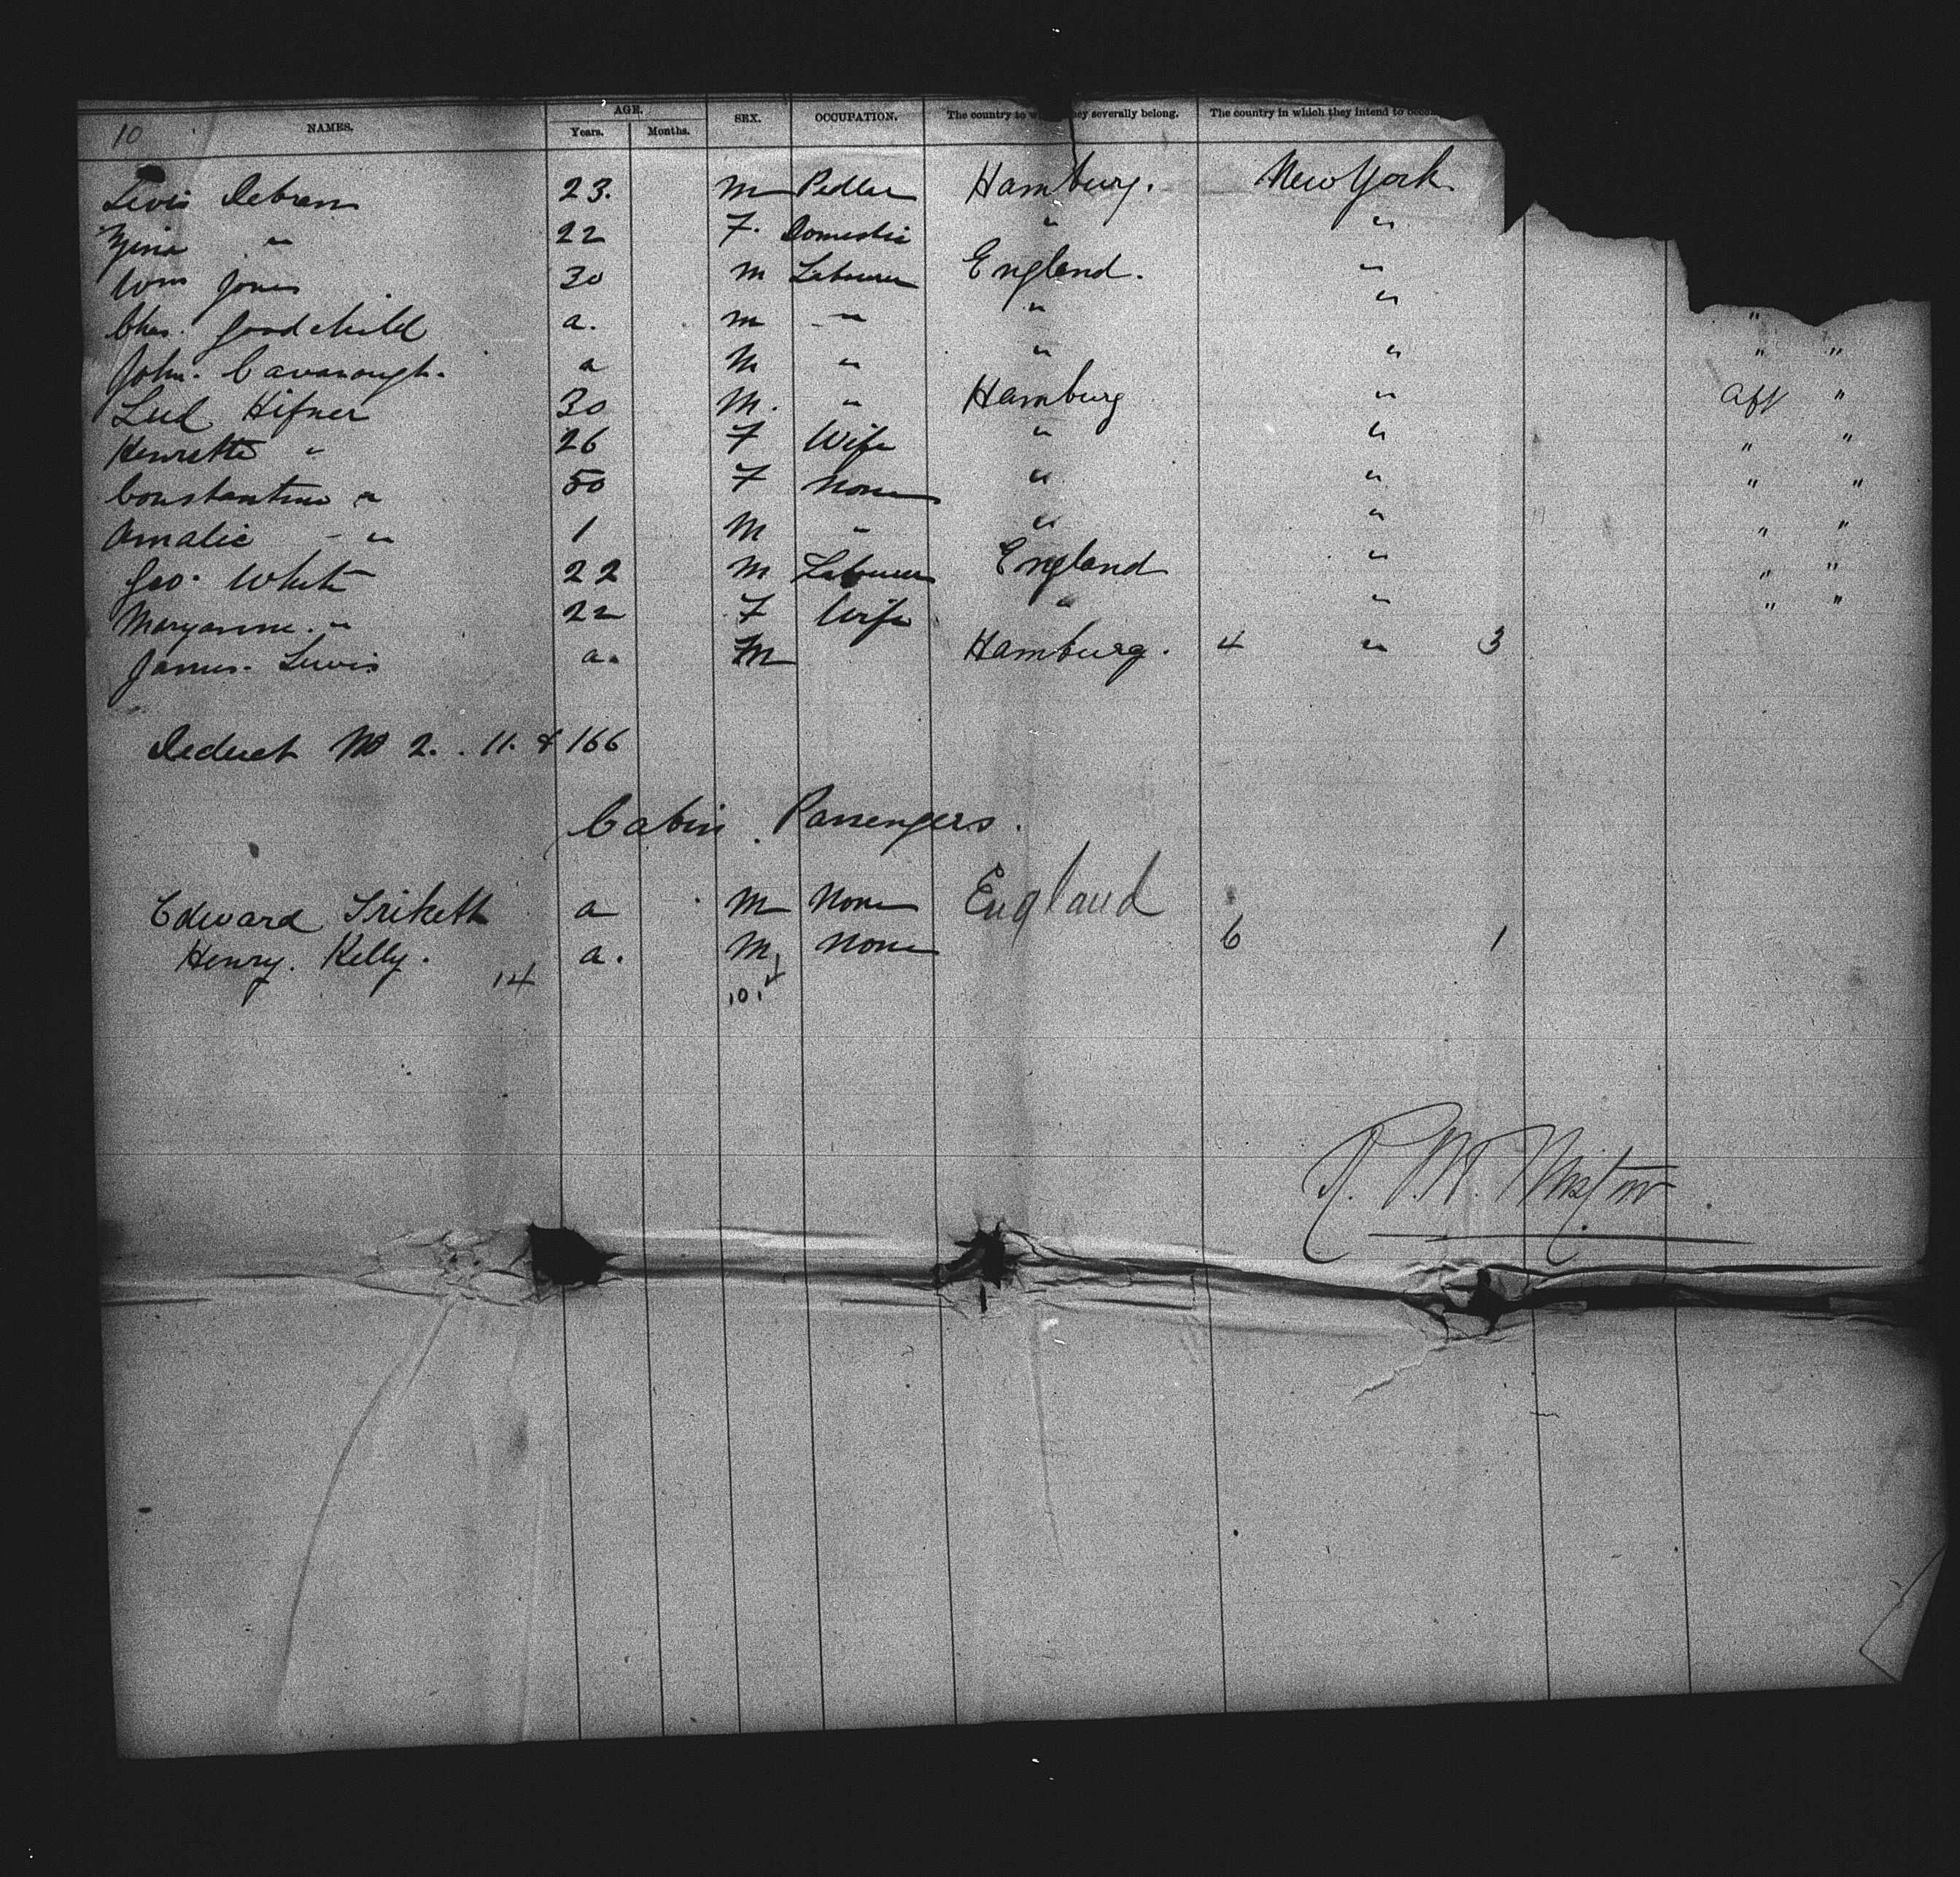 10 NAMES. AGE. Years. Months. SEX. OCCUPATION. The country to they severally belong. The country in which they intend to
Levis Debran 23. M Pedler Hamburg. New York
" 22 F. Domestic " "
Wm Jones 30 M Labourer England. "
Chas. Goodchild a. M " " " "
John. Cavanough. a M " " " " "
Lud Hifner 30 M. " Hamburg " Aft "
Henrette " 26 F Wife " " " "
Constantine " 50 F None " " " "
Amalie " 1 M " " " " "
Geo. White 22 M Labourer England " " "
Maryanne. " 22 F Wife " " " "
James. Lewis a. M Hamburg. 4 " 3
Deduct No 2. . 11. & 166
Cabin Passengers.
Edward Trikett a M None England
Henry. Kelly. a. M None 6 1
14 10. 4
R. M.